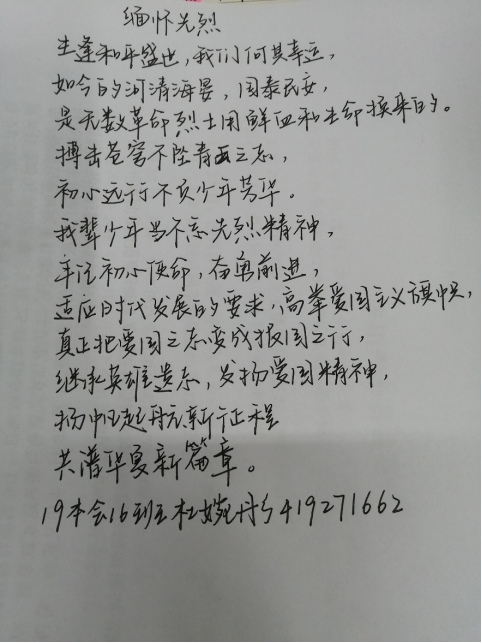 缅怀先烈
生逢和平盛世,我们何其幸运,
如今的河清海晏,国泰民安,
是无数革命烈士用鲜血和生命换来的。
搏击苍穹不坠青云之志,
初心远行不负少年芳华。
我辈少年当不忘先烈精神,
牢记初心使命,奋勇前进,
适应时代发展的要求,高举爱国主义旗帜,
真正把爱国之志变成报国之行,
继承英雄遗志,发扬爱国精神,
扬帆起航新征程
共谱华夏新篇章。
19本会16班 杜婉丹 419271662